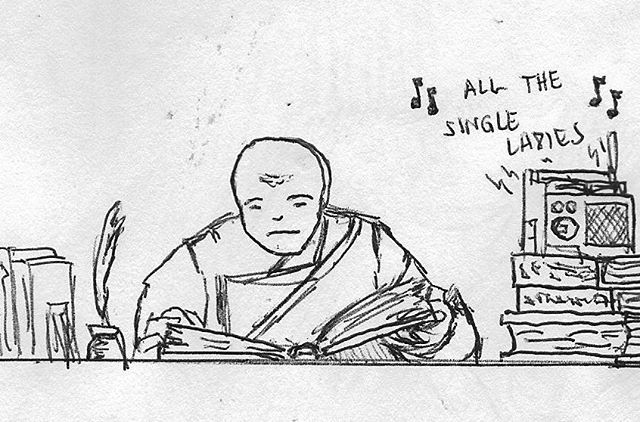 ALL THE
SINGLE
LADIES